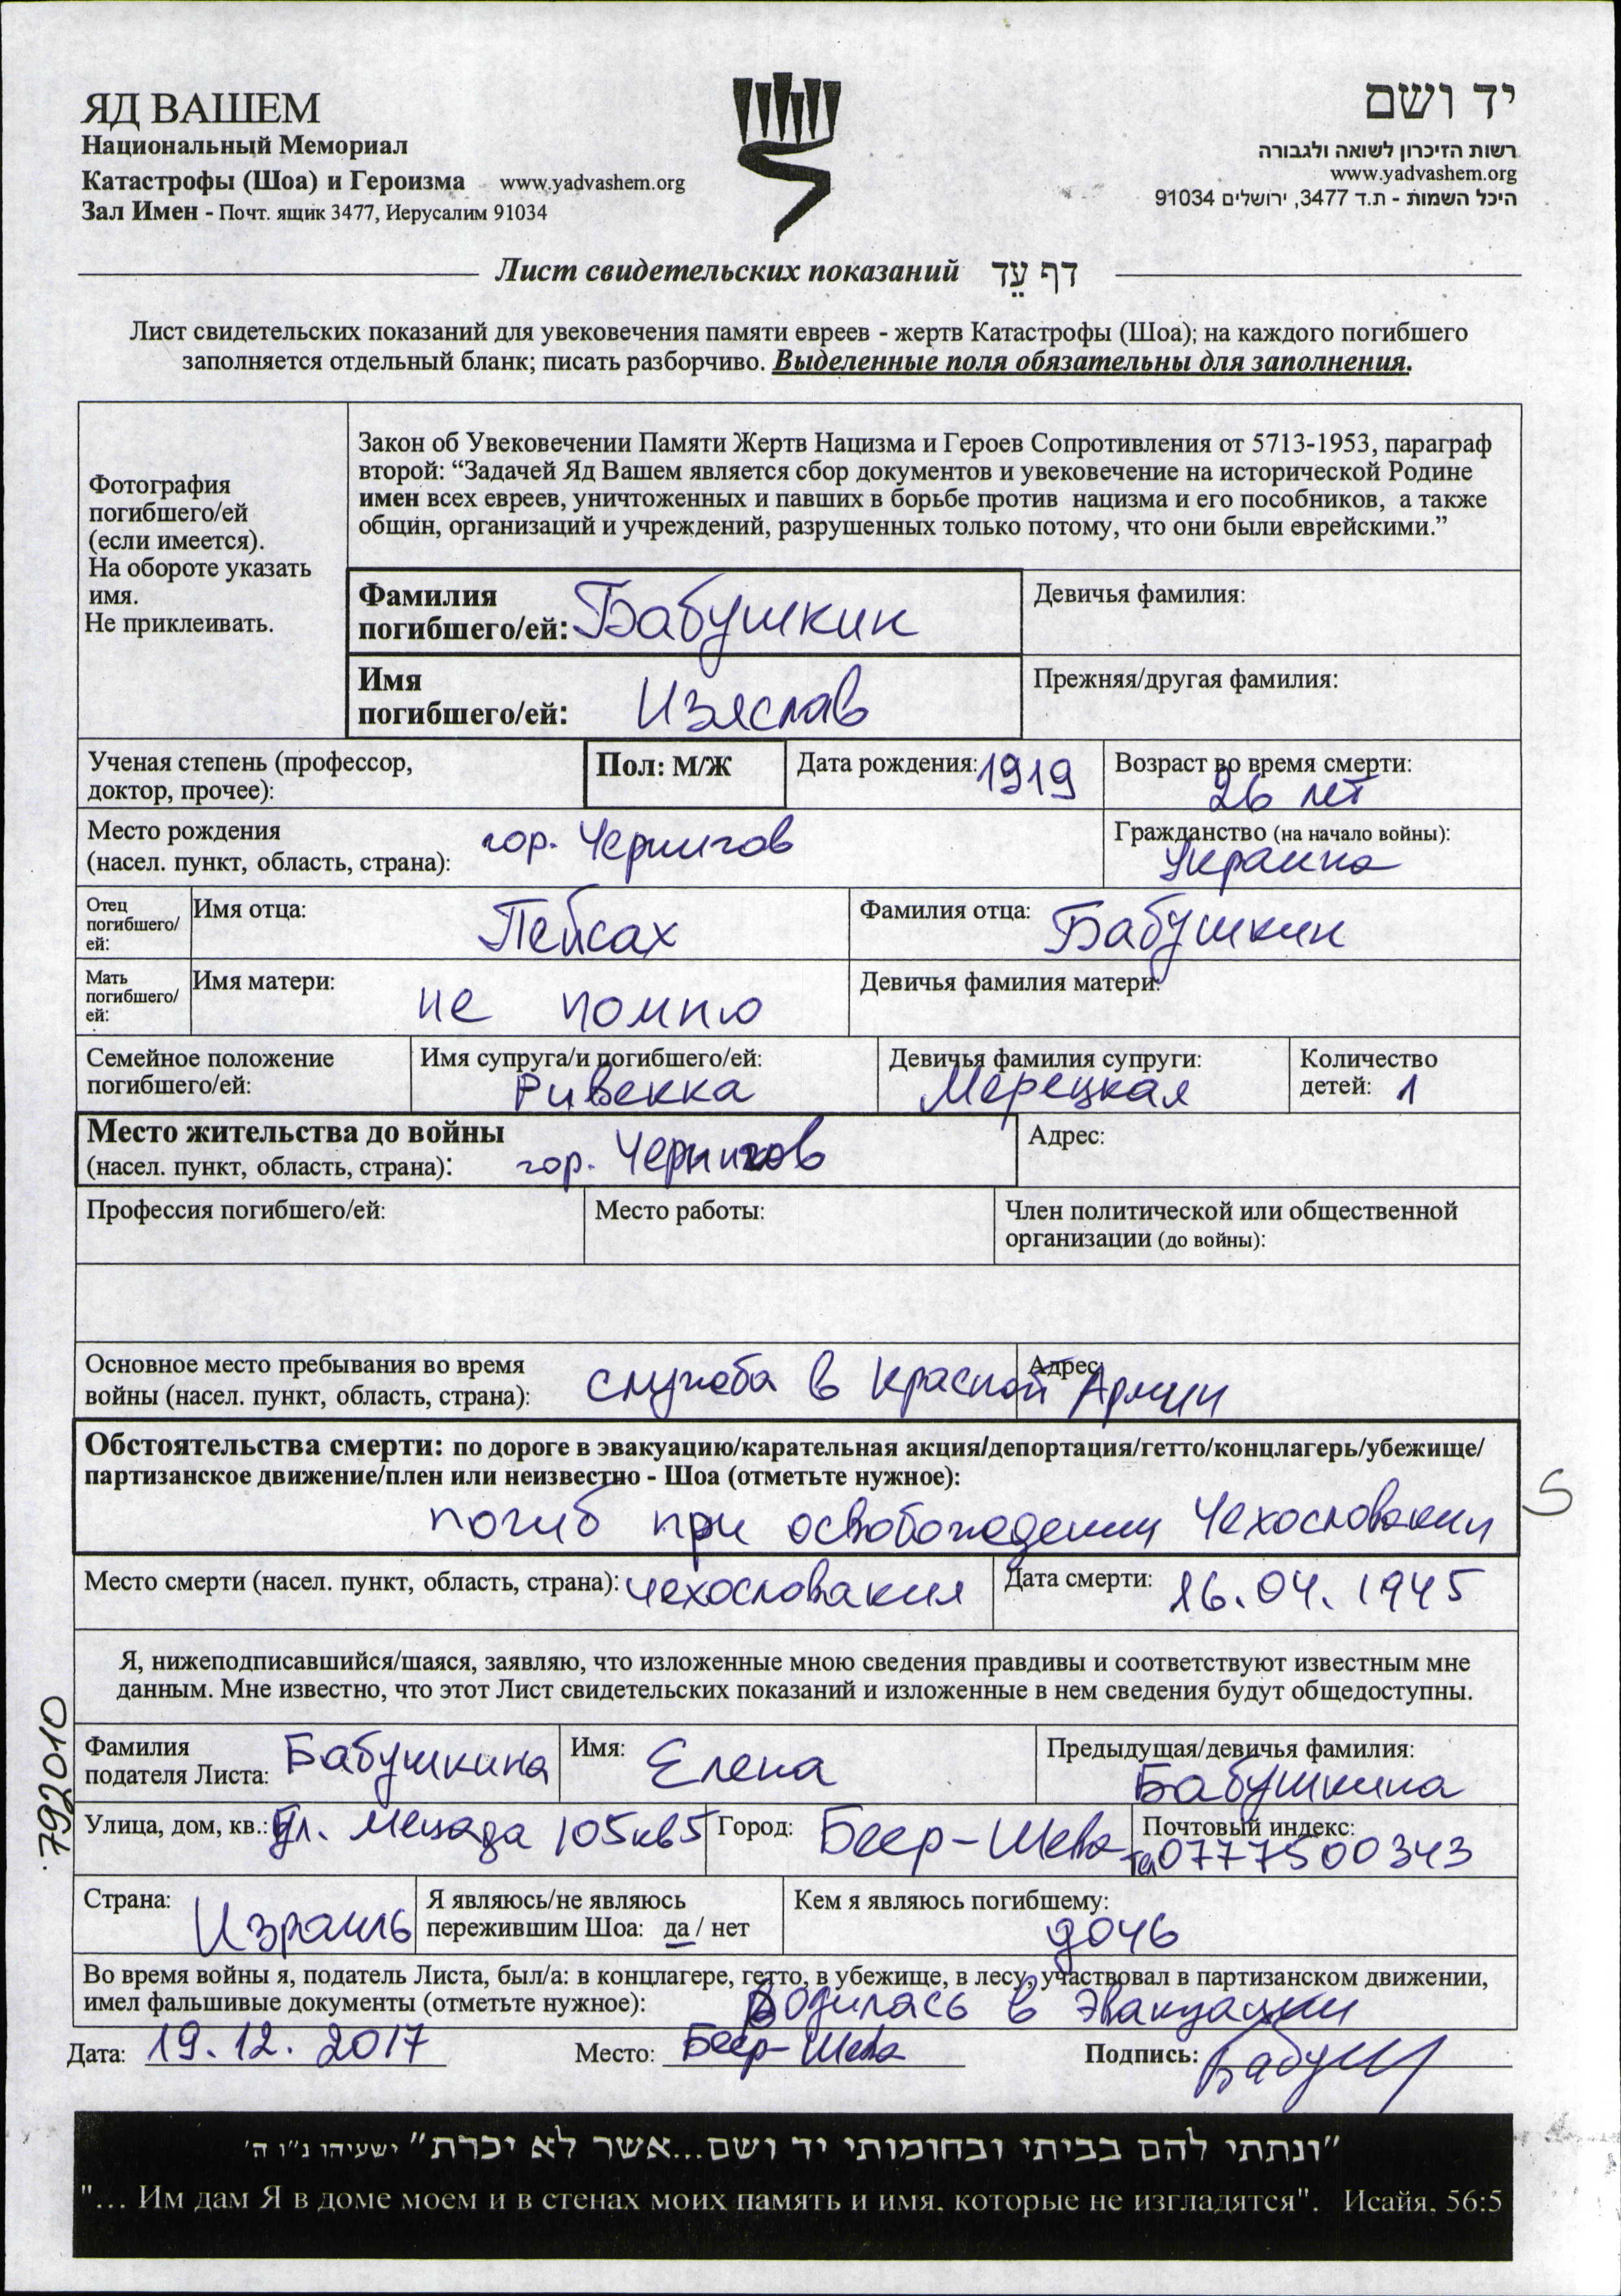 ЯД ВАШЕМ
Национальный Мемориал
Катастрофы (Шоа) и Героизма www.yadvashem.org
Зал Имен - Почт. ящик 3477, Иерусалим 91034
יד ושם
רשות הזיכרון לשואה ולגבורה
www.yadvashem.org
היכל השמות - ת.ד 3477, ירושלים 91034
Лист свидетельских показаний דף עֵד
Лист свидетельских показаний для увековечения памяти евреев - жертв Катастрофы (Шоа); на каждого погибшего
заполняется отдельный бланк; писать разборчиво. Выделенные поля обязательны для заполнения.
Фотография
погибшего/ей
(если имеется).
На обороте указать
имя.
Не приклеивать.
Закон об Увековечении Памяти Жертв Нацизма и Героев Сопротивления от 5713-1953, параграф
второй: “Задачей Яд Вашем является сбор документов и увековечение на исторической Родине
имен всех евреев, уничтоженных и павших в борьбе против нацизма и его пособников, а также
общин, организаций и учреждений, разрушенных только потому, что они были еврейскими.”
Фамилия
погибшего/ей: Бабушкин
Девичья фамилия:
Имя
погибшего/ей: Изяслав
Прежняя/другая фамилия:
Ученая степень (профессор,
доктор, прочее):
Пол: М/Ж
Дата рождения: 1919
Возраст во время смерти:
26 лет
Место рождения
(насел. пункт, область, страна): гор. Чернигов
Гражданство (на начало войны):
Украина
Отец
погибшего/
ей:
Имя отца: Пейсах
Фамилия отца: Бабушкин
Мать
погибшего/
ей:
Имя матери: не помню
Девичья фамилия матери:
Семейное положение
погибшего/ей:
Имя супруга/и погибшего/ей:
Ривекка
Девичья фамилия супруги:
Мерецкая
Количество
детей: 1
Место жительства до войны
(насел. пункт, область, страна): гор. Чернигов
Адрес:
Профессия погибшего/ей:
Место работы:
Член политической или общественной
организации (до войны):
Основное место пребывания во время
войны (насел. пункт, область, страна): служба в Красной Армии
Адрес:
Обстоятельства смерти: по дороге в эвакуацию/карательная акция/депортация/гетто/концлагерь/убежище/
партизанское движение/плен или неизвестно - Шоа (отметьте нужное):
погиб при освобождении Чехословакии
S
Место смерти (насел. пункт, область, страна): Чехословакия
Дата смерти: 16.04.1945
Я, нижеподписавшийся/шаяся, заявляю, что изложенные мною сведения правдивы и соответствуют известным мне
данным. Мне известно, что этот Лист свидетельских показаний и изложенные в нем сведения будут общедоступны.
792010
Фамилия
подателя Листа: Бабушкина
Имя: Елена
Предыдущая/девичья фамилия:
Бабушкина
Улица, дом, кв.: ул. Мецада 105 кв 5
Город: Беер-Шева
Почтовый индекс:
тел 0777500343
Страна: Израиль
Я являюсь/не являюсь
пережившим Шоа: да / нет
Кем я являюсь погибшему:
дочь
Во время войны я, податель Листа, был/а: в концлагере, гетто, в убежище, в лесу, участвовал в партизанском движении,
имел фальшивые документы (отметьте нужное): Родилась в Эвакуации
Дата: 19.12.2017 Место: Беер-Шева Подпись: Бабуш
"ונתתי להם בביתי ובחומותי יד ושם...אשר לא יכרת" ישעיהו נ"ו ה'
"... Им дам Я в доме моем и в стенах моих память и имя, которые не изгладятся". Исайя, 56:5